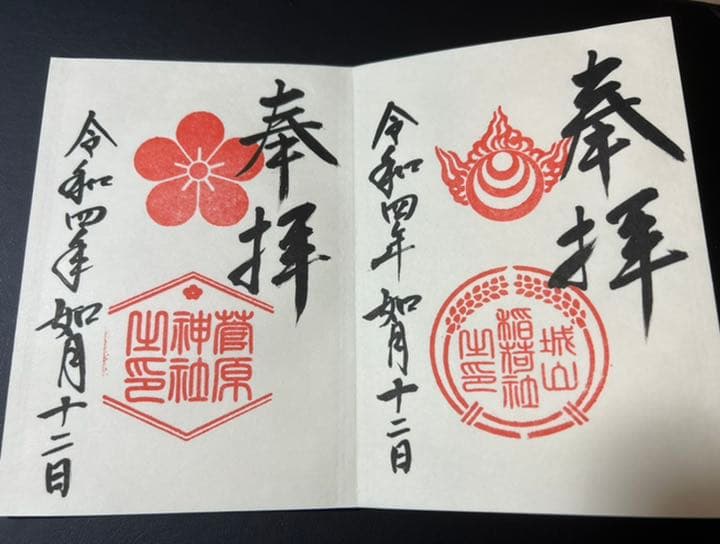 奉拝
城山
稲荷社
之印
令和四年如月十二日
奉拝
菅原
神社
之印
令和四年如月十二日